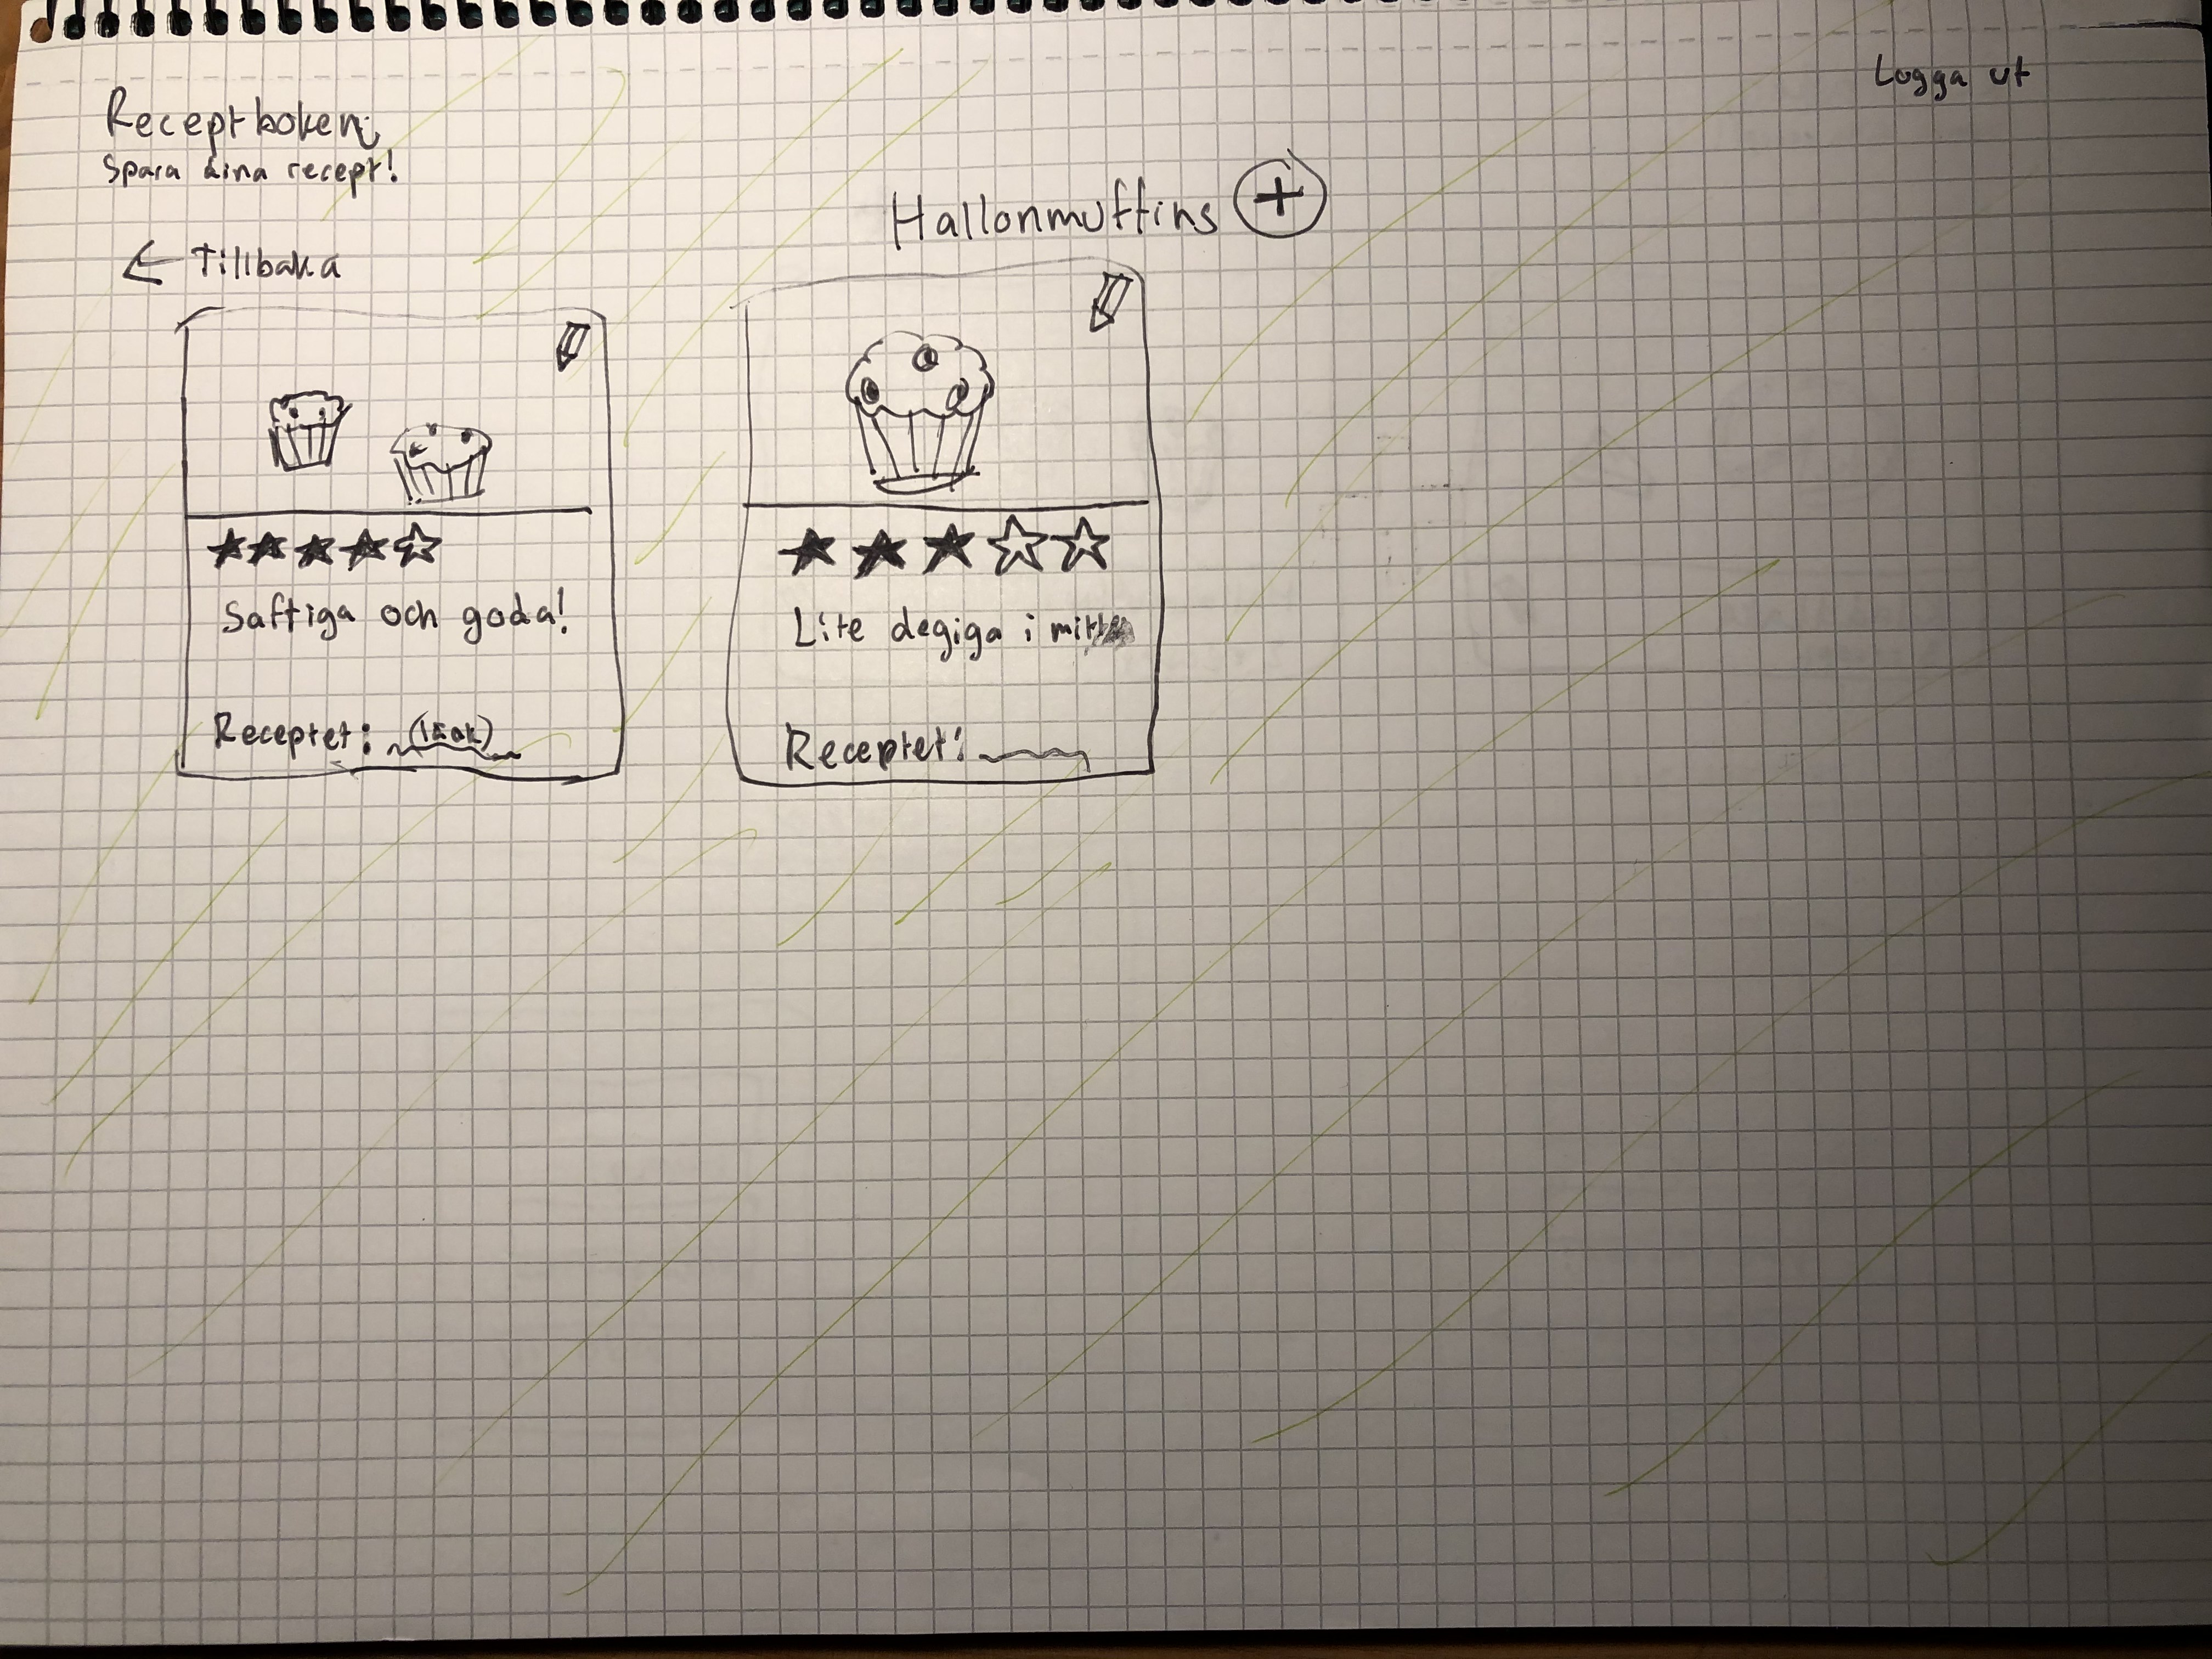 Logga ut
Receptboken
Spara dina recept!
← Tillbaka
Hallonmuffins +
★★★★☆
Saftiga och goda!
Receptet: (länk)
★★★☆☆
Lite degiga i mitten
Receptet: